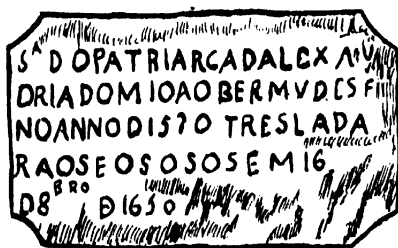 Sᴬ DO PATRIARCA DALEXAN
DRIA DOM IOAO BERMVDES F
NO ANNO D 1570 TRESLADA
RAOSE OS OSOS EM 16
D 8ᴮᴿᴼ D 1650